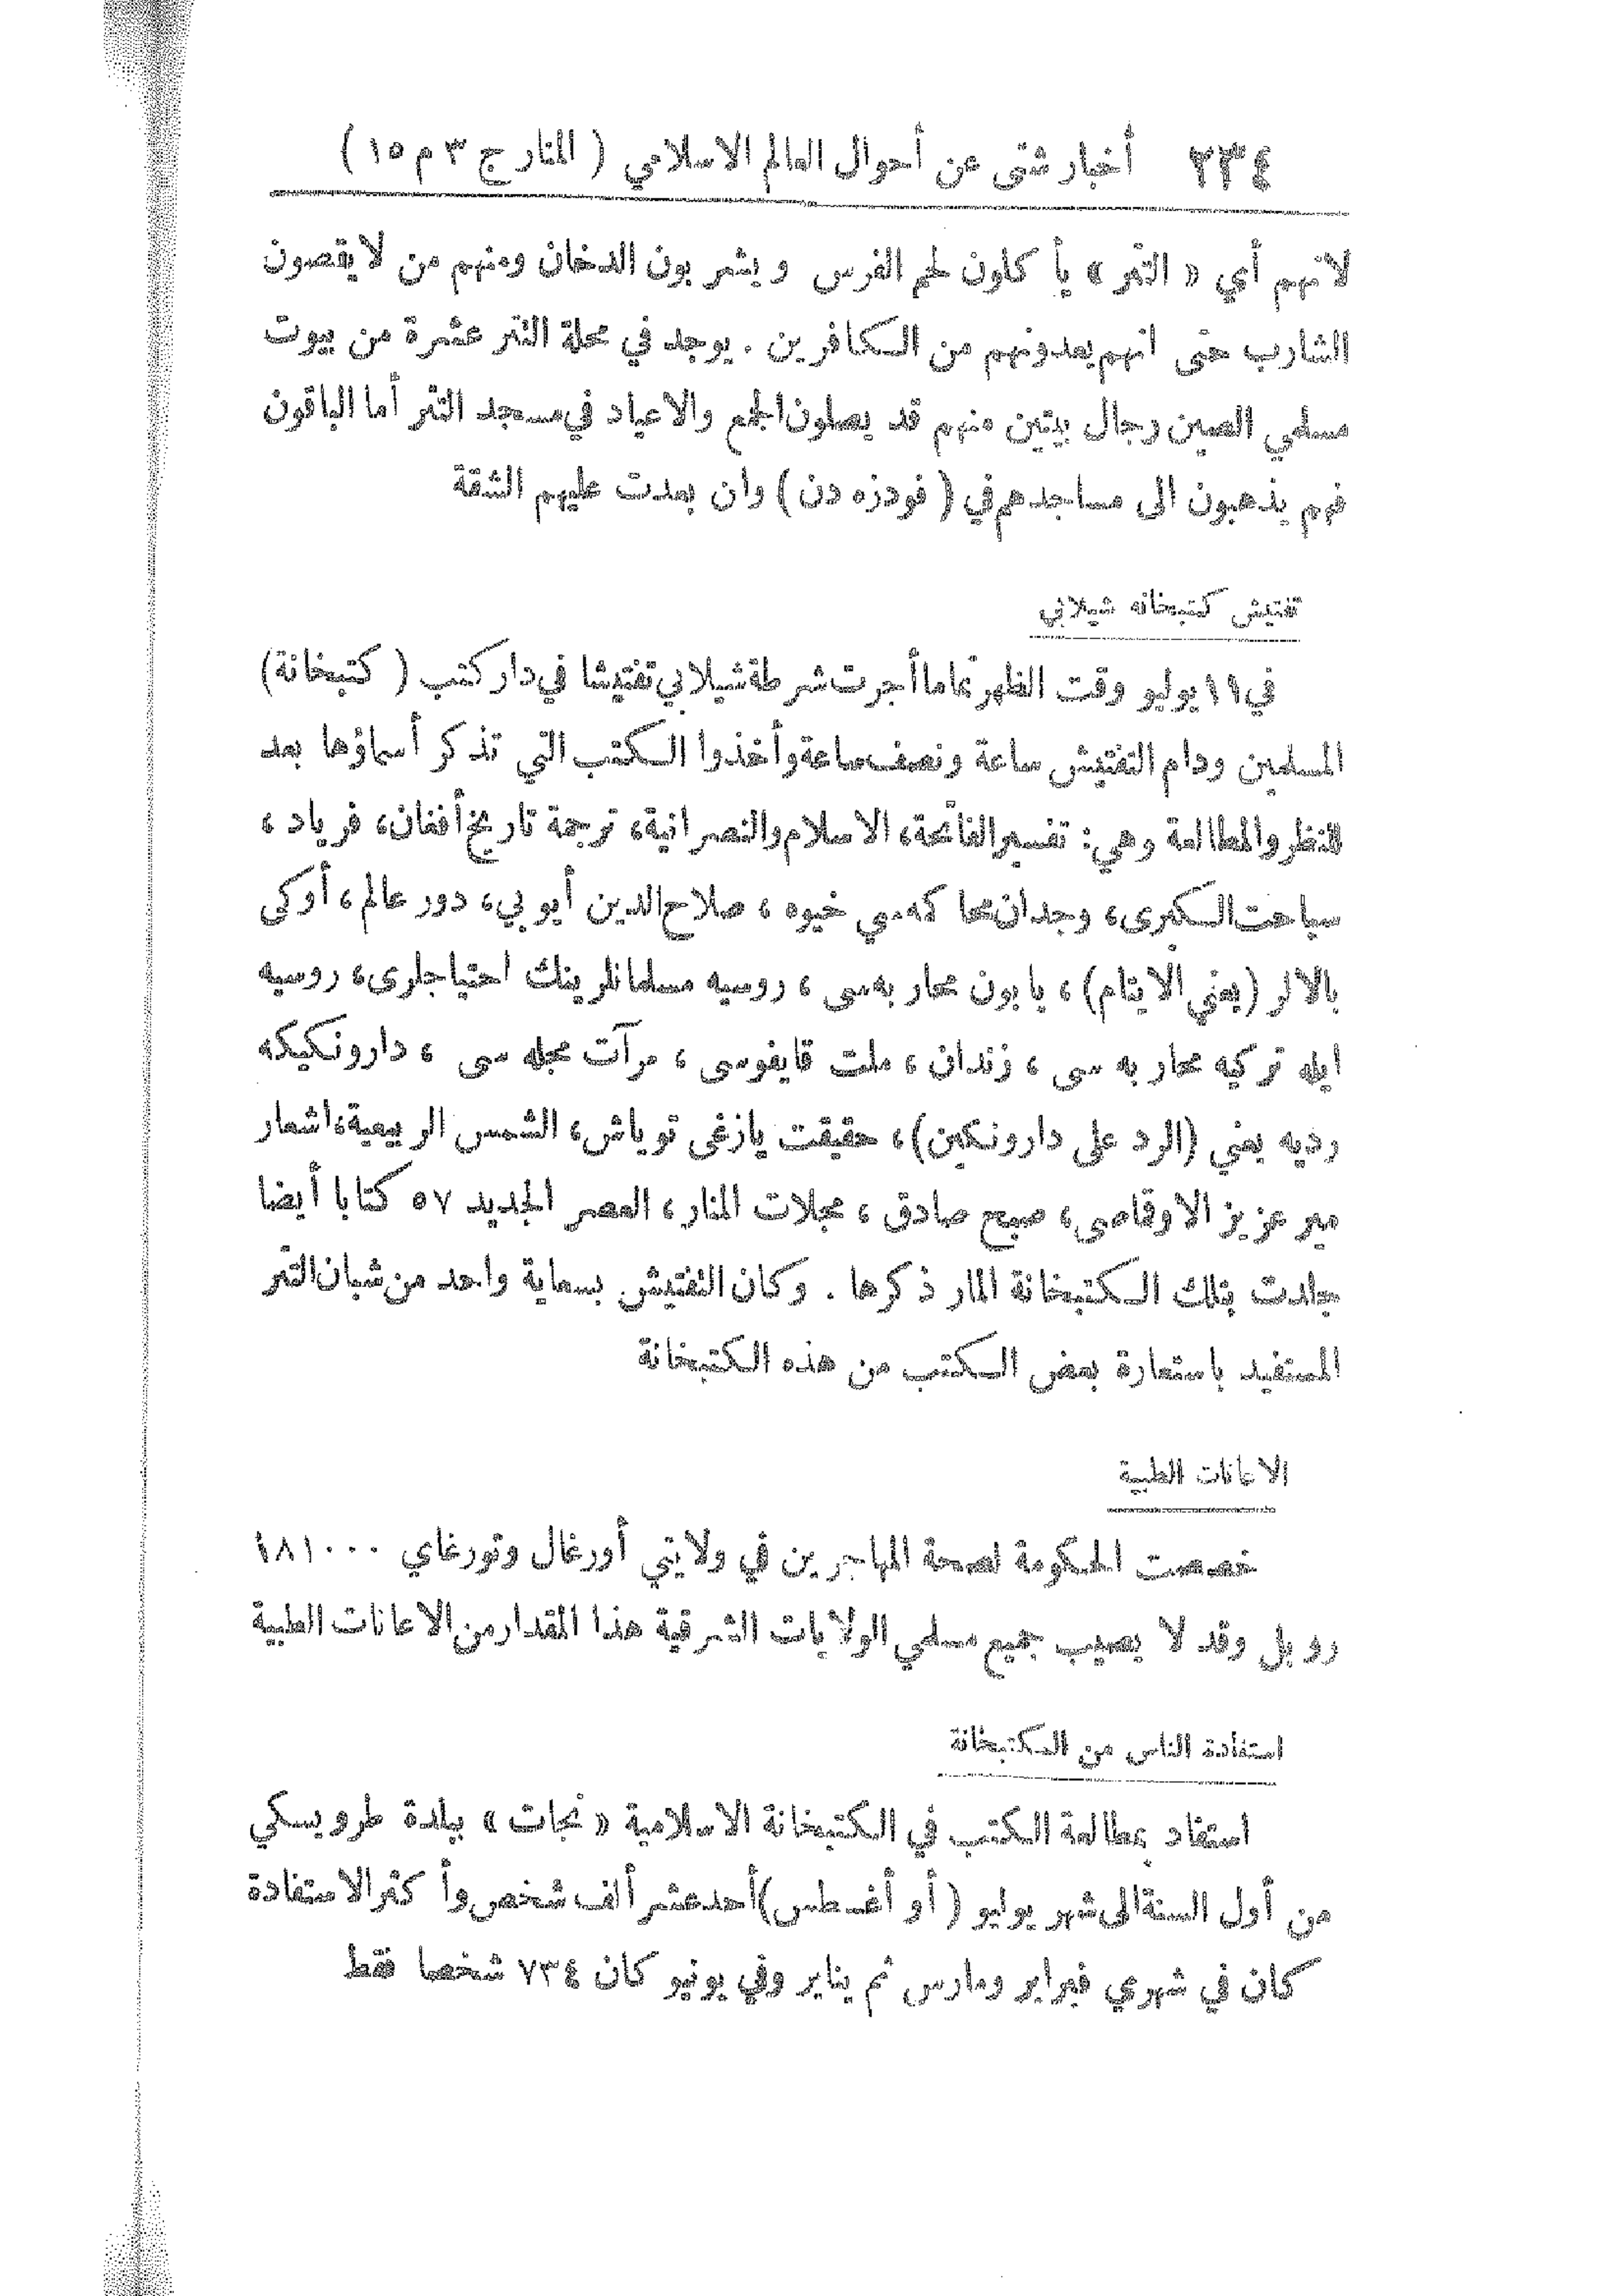 ٢٣٤ أخبار شتى عن أحوال العالم الاسلامي ( المنار ج ٣ م ١٥ )
لانهم أي « التتر » يأ كلون لحم الفرس و يشر بون الدخان ومنهم من لا يقصون
الشارب حتى انهم يعدونهم من الكافرين . يوجد في محلة التتر عشرة من بيوت
مسلمي الصين رجال بيتين منهم قد يصلون الجمع والاعياد في مسجد التتر أما الباقون
فهم يذهبون الى مساجدهم في ( فودزه دن ) وان بعدت عليهم الشقة
تفتيش كتبخانه شيلابي
في ١٩ يوليو وقت الظهر تماما أجرت شرطة شيلابي تفتيشا في دار كتب ( كتبخانة )
المسلمين ودام التفتيش ساعة ونصف ساعة وأخذوا الكتب التي تذكر أسماؤها بعد
للنظر والمطالعة وهي : تفسير الفاتحة ، الاسلام والنصرانية ، ترجمة تاريخ أفغان ، فرياد ،
سياحت الكبرى ، وجدان محا كه سي خيوه ، صلاح الدين أيوبي ، دور عالم ، أوكى
بالالر (يعني الايتام) ، يابون محار به سى ، روسيه مسلمانلرينك احتياجلرى ، روسيه
ايله تركيه محار به سى ، زندان ، ملت قايغوسى ، مرآت مجله سى ، دارونكيكه
رديه يعني (الرد على دارونكين) ، حقيقت يازغى توياش ، الشمس الربيعية ، اشعار
مير عزيز الاوقاصى ، صبح صادق ، مجلات المنار ، العصر الجديد ٥٧ كتابا أيضا
جلدت بتلك الكتبخانة المار ذكرها . وكان التفتيش بسعاية واحد من شبان التتر
المستفيد باستعارة بعض الكتب من هذه الكتبخانة
الاعانات الطبية
خصصت الحكومة لصحة المهاجرين في ولايتي أورغال وتورغاي ١٨١٠٠٠
روبل وقد لا يصيب جميع مسلمي الولايات الشرقية هذا المقدار من الاعانات الطبية
استفادة الناس من الكتبخانة
استفاد بمطالعة الكتب في الكتبخانة الاسلامية « نجات » ببلدة طرويسكي
من أول السنة الى شهر يوليو ( أو أغسطس ) أحد عشر ألف شخص وأ كثر الاستفادة
كان في شهري فبراير ومارس ثم يناير وفي يونيو كان ٧٣٤ شخصا فقط